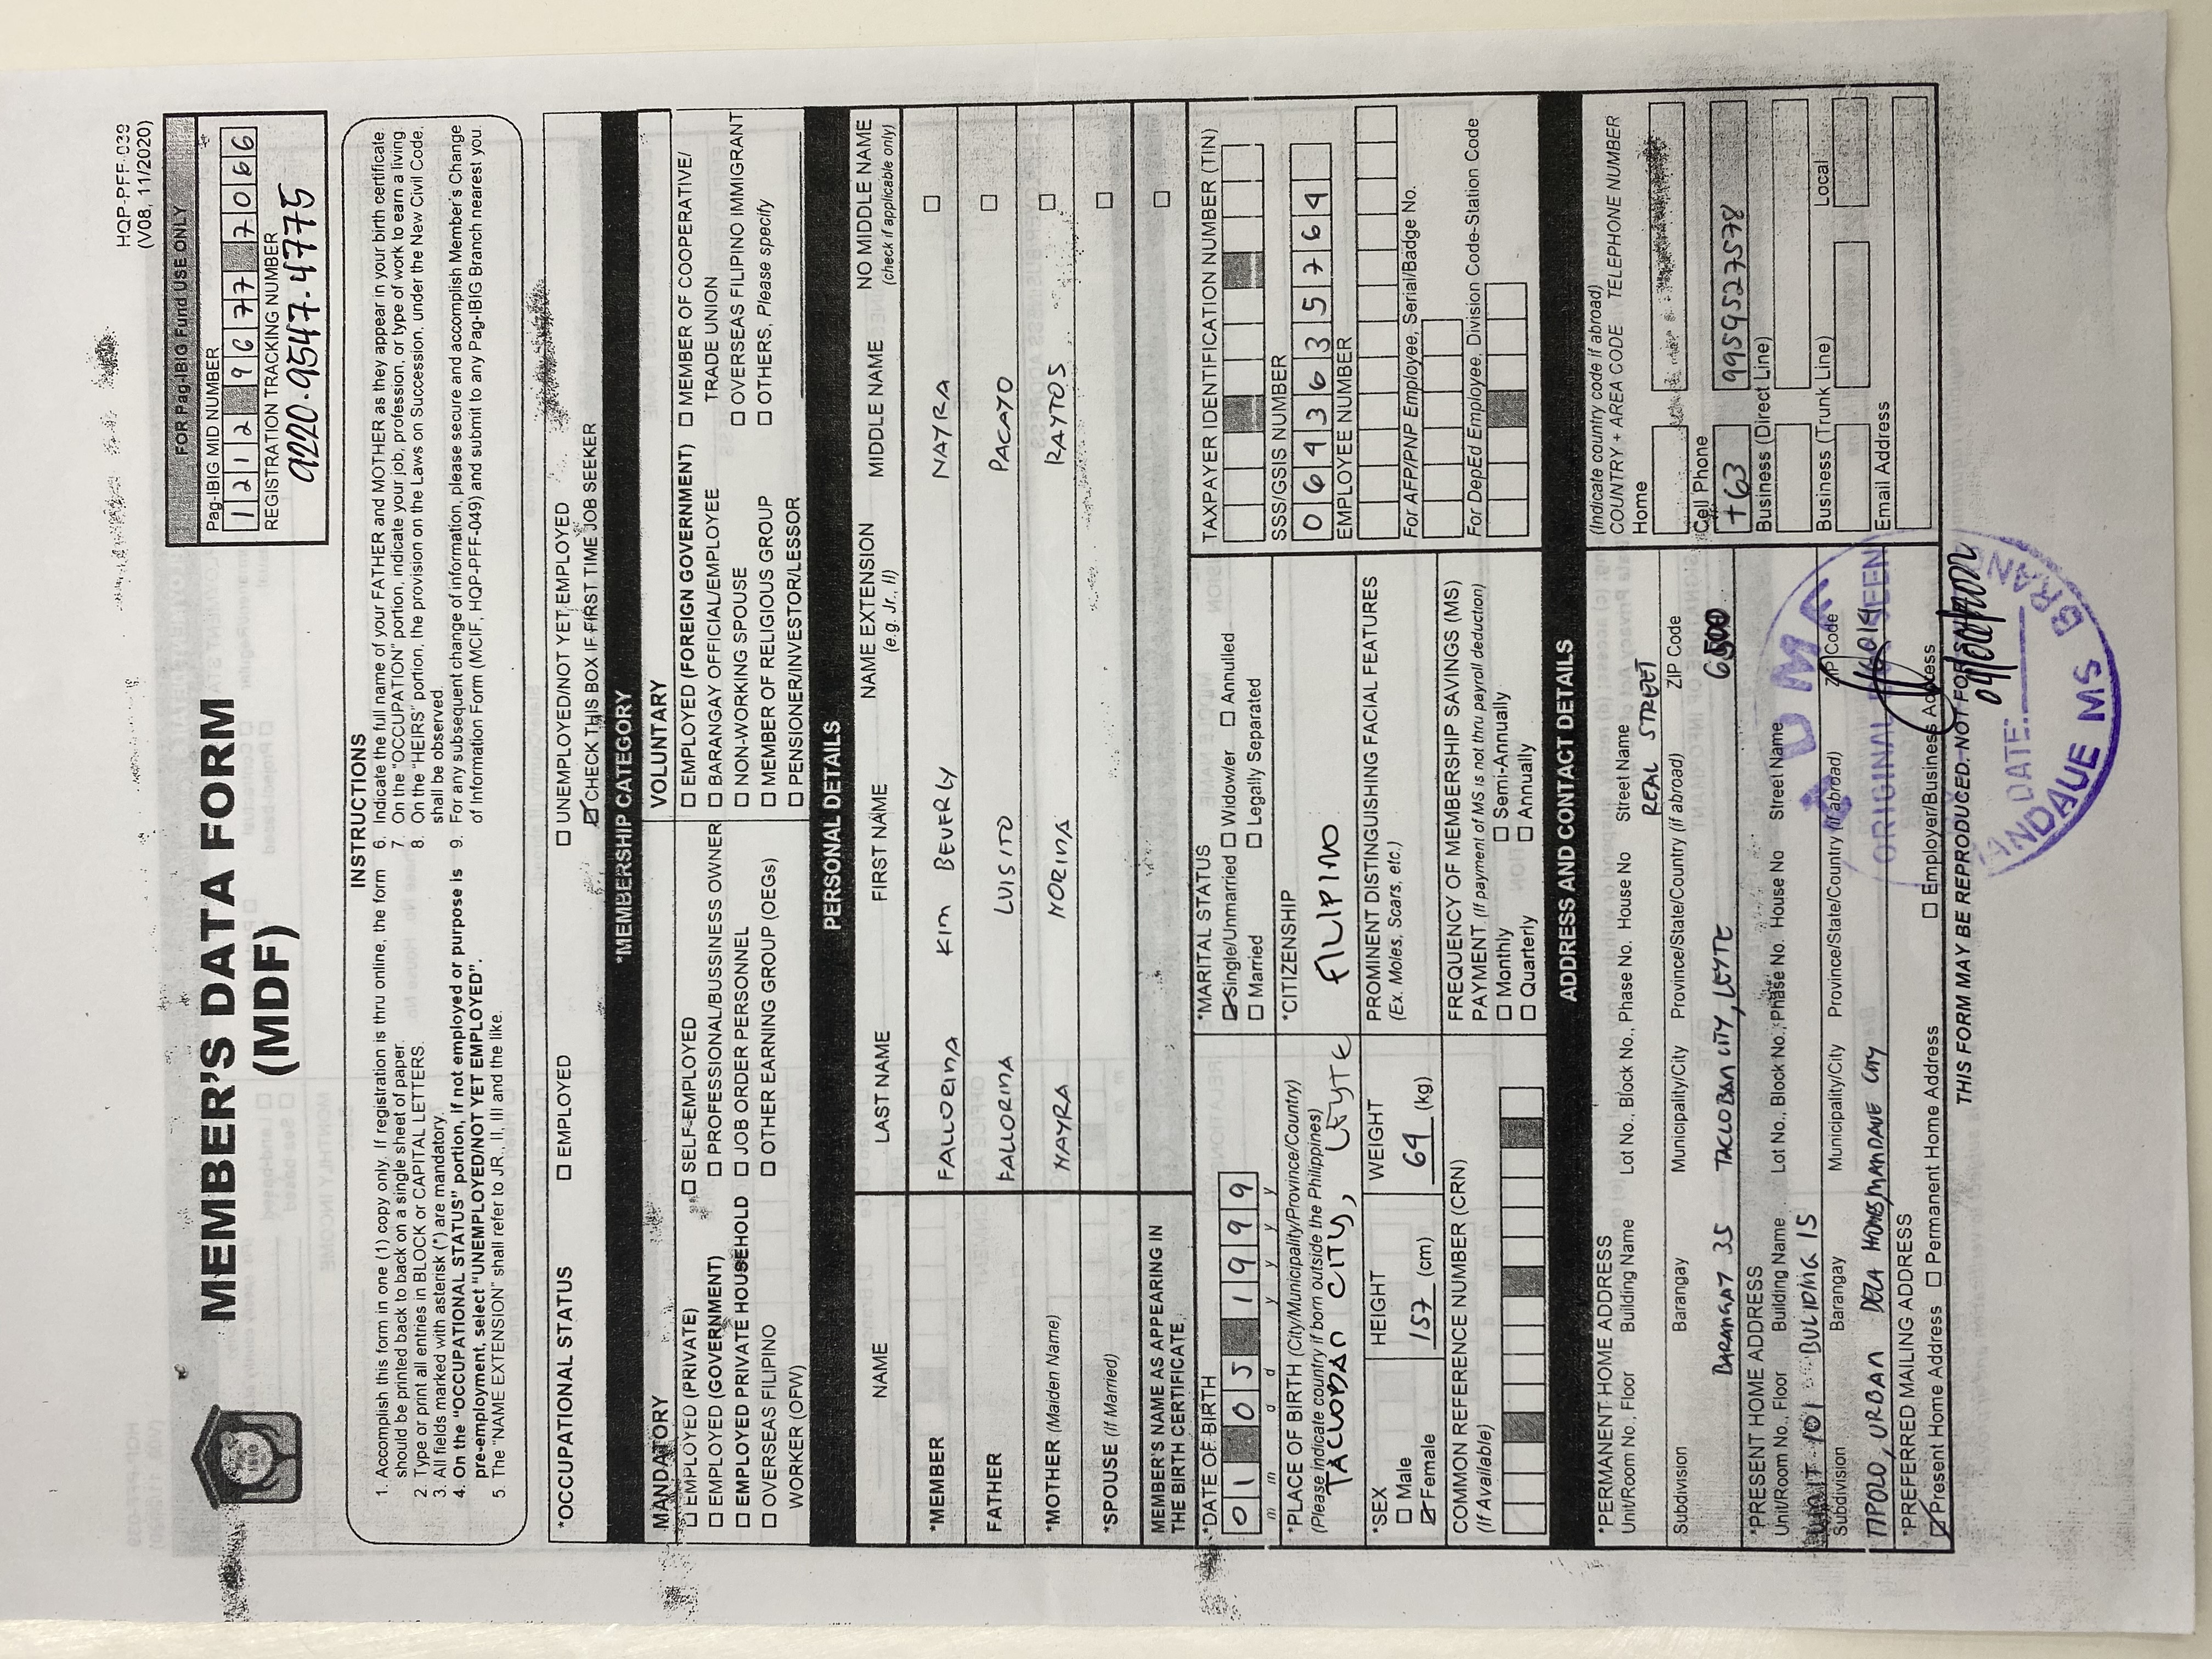 HQP-PFF-039
(V08, 11/2020)
MEMBER'S DATA FORM
(MDF)
FOR Pag-IBIG Fund USE ONLY
Pag-IBIG MID NUMBER
1 2 1 2 9 6 7 7 7 0 6 6
REGISTRATION TRACKING NUMBER
9220-9547-4775
INSTRUCTIONS
1. Accomplish this form in one (1) copy only. If registration is thru online, the form
should be printed back to back on a single sheet of paper.
2. Type or print all entries in BLOCK or CAPITAL LETTERS.
3. All fields marked with asterisk (*) are mandatory.
4. On the "OCCUPATIONAL STATUS" portion, if not employed or purpose is
pre-employment, select "UNEMPLOYED/NOT YET EMPLOYED".
5. The "NAME EXTENSION" shall refer to JR., II, III and the like.
6. Indicate the full name of your FATHER and MOTHER as they appear in your birth certificate
7. On the "OCCUPATION" portion, indicate your job, profession, or type of work to earn a living
8. On the "HEIRS" portion, the provision on the Laws on Succession, under the New Civil Code,
shall be observed.
9. For any subsequent change of information, please secure and accomplish Member's Change
of Information Form (MCIF, HQP-PFF-049) and submit to any Pag-IBIG Branch nearest you.
*OCCUPATIONAL STATUS
☐ EMPLOYED
☐ UNEMPLOYED/NOT YET EMPLOYED
☑ CHECK THIS BOX IF FIRST TIME JOB SEEKER
*MEMBERSHIP CATEGORY
MANDATORY
☐ EMPLOYED (PRIVATE)
☐ EMPLOYED (GOVERNMENT)
☐ EMPLOYED PRIVATE HOUSEHOLD
☐ OVERSEAS FILIPINO
WORKER (OFW)
☐ SELF-EMPLOYED
☐ PROFESSIONAL/BUSSINESS OWNER
☐ JOB ORDER PERSONNEL
☐ OTHER EARNING GROUP (OEGs)
VOLUNTARY
☐ EMPLOYED (FOREIGN GOVERNMENT)
☐ BARANGAY OFFICIAL/EMPLOYEE
☐ NON-WORKING SPOUSE
☐ MEMBER OF RELIGIOUS GROUP
☐ PENSIONER/INVESTOR/LESSOR
☐ MEMBER OF COOPERATIVE/
TRADE UNION
☐ OVERSEAS FILIPINO IMMIGRANT
☐ OTHERS, Please specify
PERSONAL DETAILS
NAME LAST NAME FIRST NAME NAME EXTENSION MIDDLE NAME NO MIDDLE NAME
(e.g. Jr., II) (check if applicable only)
*MEMBER FALLORINA KIM BEVERLY NAYRA ☐
FATHER FALLORINA LUISITO PACAYO ☐
*MOTHER (Maiden Name) NAYRA NORINA RAYTOS ☐
*SPOUSE (If Married) ☐
MEMBER'S NAME AS APPEARING IN
THE BIRTH CERTIFICATE ☐
*DATE OF BIRTH
0 1 0 5 1 9 9 9
m m d d y y y y
*MARITAL STATUS
☑ Single/Unmarried ☐ Widow/er ☐ Annulled
☐ Married ☐ Legally Separated
TAXPAYER IDENTIFICATION NUMBER (TIN)
*PLACE OF BIRTH (City/Municipality/Province/Country)
(Please indicate country if born outside the Philippines)
TACLOBAN CITY, LEYTE
*CITIZENSHIP
FILIPINO
SSS/GSIS NUMBER
0 6 4 3 6 3 5 7 6 4
EMPLOYEE NUMBER
*SEX
☐ Male
☑ Female
HEIGHT
157 (cm)
WEIGHT
64 (kg)
PROMINENT DISTINGUISHING FACIAL FEATURES
(Ex. Moles, Scars, etc.)
For AFP/PNP Employee, Serial/Badge No.
COMMON REFERENCE NUMBER (CRN)
(If Available)
FREQUENCY OF MEMBERSHIP SAVINGS (MS)
PAYMENT (If payment of MS is not thru payroll deduction)
☐ Monthly ☐ Semi-Annually
☐ Quarterly ☐ Annually
For DepEd Employee, Division Code-Station Code
ADDRESS AND CONTACT DETAILS
*PERMANENT HOME ADDRESS
Unit/Room No., Floor Building Name Lot No., Block No., Phase No. House No Street Name
REAL STREET
Subdivision Barangay Municipality/City Province/State/Country (if abroad) ZIP Code
BARANGAY 35 TACLOBAN CITY, LEYTE 6500
*PRESENT HOME ADDRESS
Unit/Room No., Floor Building Name Lot No., Block No., Phase No. House No Street Name
UNIT 101 BULIDING 15
Subdivision Barangay Municipality/City Province/State/Country (if abroad) ZIP Code
TIPOLO, URBAN DECA HOMES MANDAUE CITY 6014
*PREFERRED MAILING ADDRESS
☑ Present Home Address ☐ Permanent Home Address ☐ Employer/Business Address
(Indicate country code if abroad)
COUNTRY + AREA CODE TELEPHONE NUMBER
Home
Cell Phone
+63 9959527578
Business (Direct Line)
Business (Trunk Line) Local
Email Address
THIS FORM MAY BE REPRODUCED. NOT FOR SALE
ORIGINAL SEEN
DATE:
MANDAUE MS BRANCH